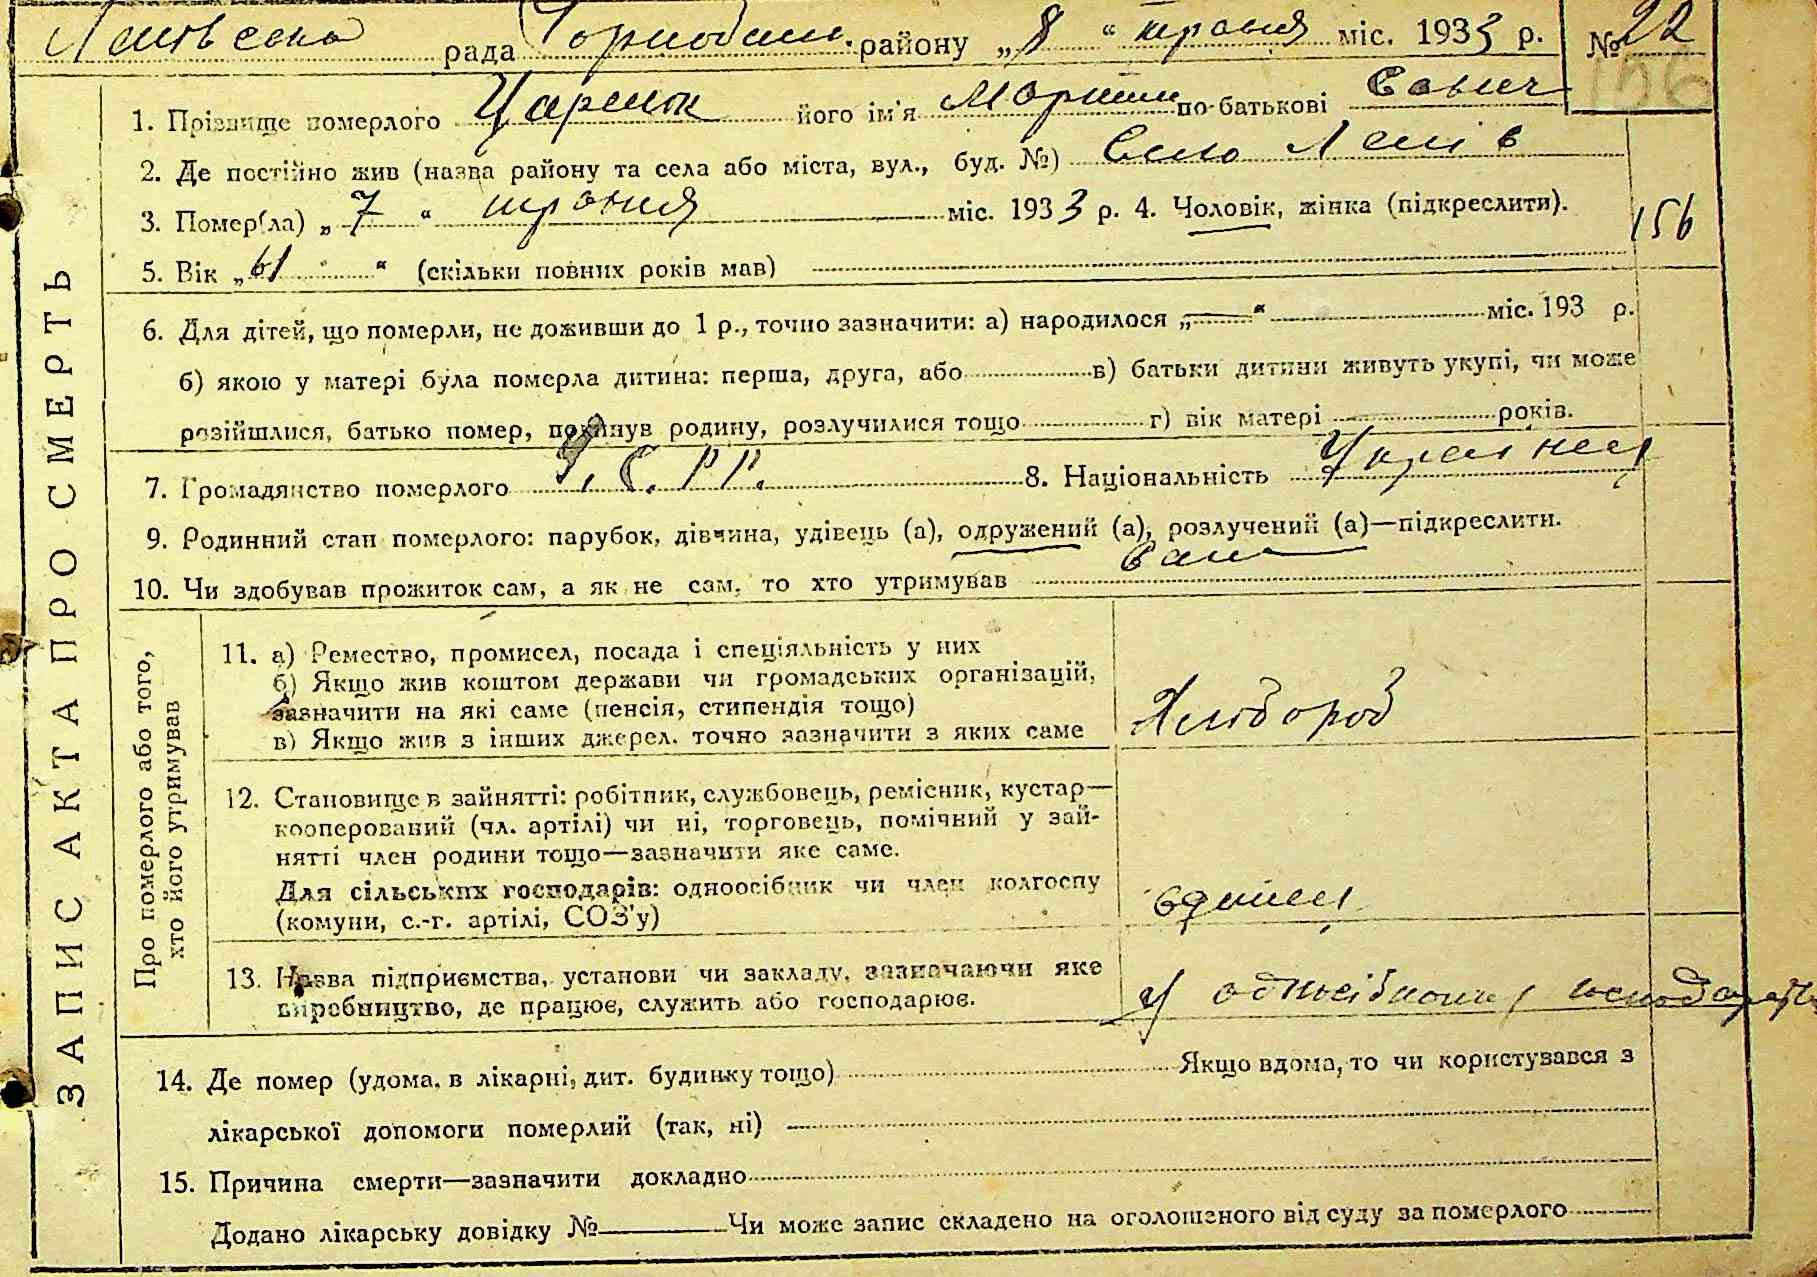 рада Чорнобил. району „8“ травня міс. 1933 р. № 22
156
1. Прізвище померлого його ім'я Мартин по-батькові Савич
2. Де постійно жив (назва району та села або міста, вул., буд. №) Село
3. Помер(ла) „7“ травня міс. 1933 р. 4. Чоловік, жінка (підкреслити).
156
5. Вік „61“ (скільки повних років мав)
6. Для дітей, що померли, не доживши до 1 р., точно зазначити: а) народилося „—“ міс. 193 р.
б) якою у матері була померла дитина: перша, друга, або в) батьки дитини живуть укупі, чи може
розійшлися, батько помер, покинув родину, розлучилися тощо г) вік матері років.
7. Громадянство померлого У.С.Р.Р. 8. Національність
9. Родинний стан померлого: парубок, дівчина, удівець (а), одружений (а), розлучений (а)—підкреслити.
10. Чи здобував прожиток сам, а як не сам, то хто утримував сам
ЗАПИС АКТА ПРО СМЕРТЬ
Про померлого або того,
хто його утримував
11. а) Ремество, промисел, посада і спеціяльність у них
б) Якщо жив коштом держави чи громадських організацій,
зазначити на які саме (пенсія, стипендія тощо)
в) Якщо жив з інших джерел, точно зазначити з яких саме
Хлібороб
12. Становище в зайнятті: робітник, службовець, ремісник, кустар—
кооперований (чл. артілі) чи ні, торговець, помічний у зай-
нятті член родини тощо—зазначити яке саме.
Для сільських господарів: одноосібник чи член колгоспу
(комуни, с.-г. артілі, СОЗ'у)
13. Назва підприємства, установи чи закладу, зазначаючи яке
виробництво, де працює, служить або господарює.
у
14. Де помер (удома, в лікарні, дит. будинку тощо) Якщо вдома, то чи користувався з
лікарської допомоги померлий (так, ні)
15. Причина смерти—зазначити докладно
Додано лікарську довідку № Чи може запис складено на оголошеного від суду за померлого